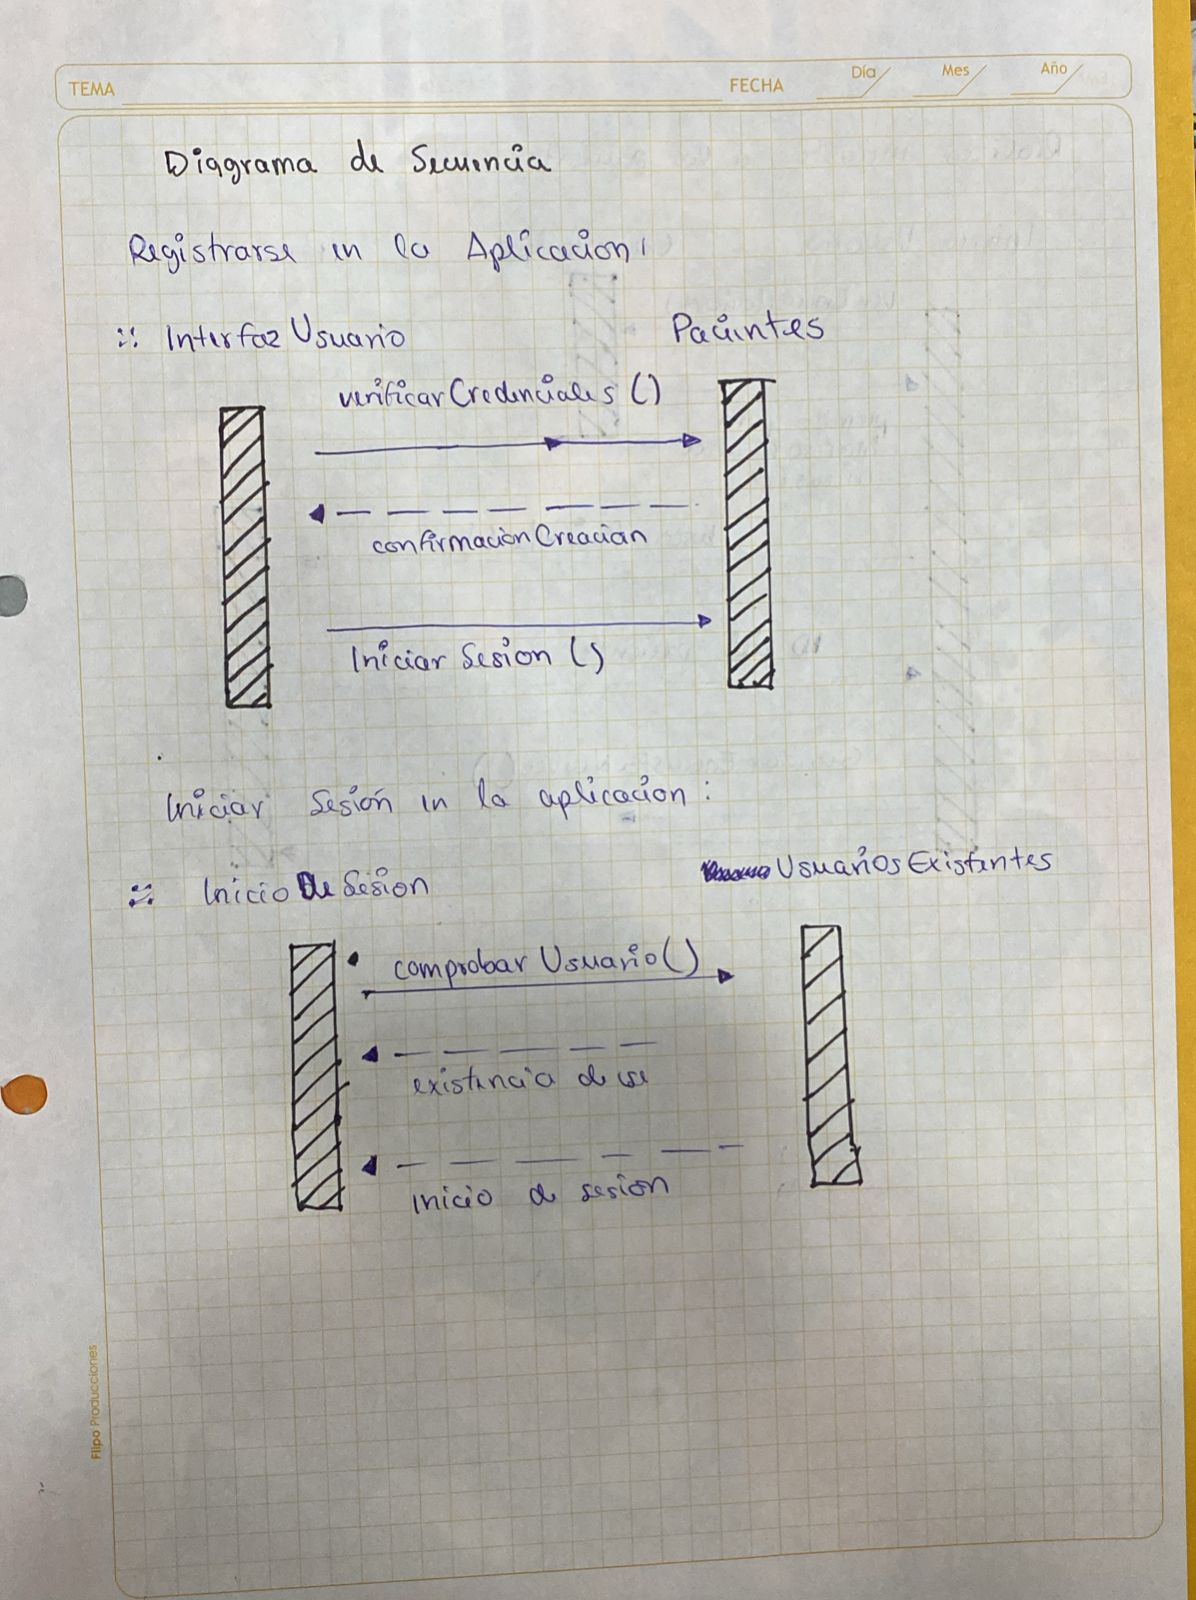 TEMA FECHA Día Mes Año
Diagrama de Secuencia
Registrarse en la Aplicación:
:: Interfaz Usuario Pacientes
verificarCredenciales ()
confirmaciónCreacian
Iniciar Sesion ()
Iniciar Sesión en la aplicación:
:: Inicio De Sesion UsuariosExistentes
comprobar Usuario()
existencia de
inicio de sesion
Flipo Producciones